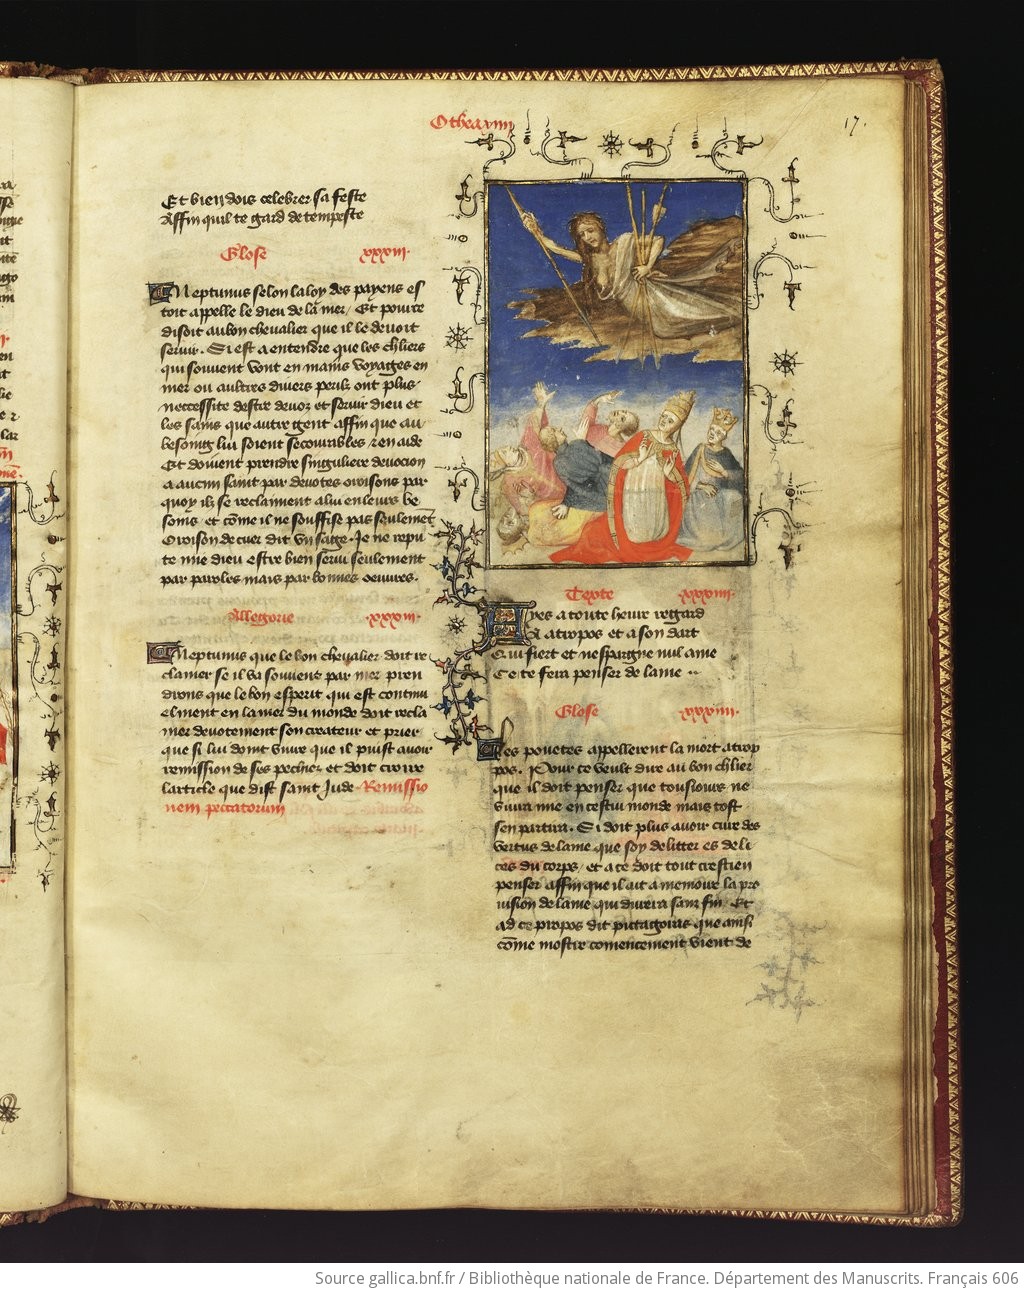 Othea xiiii
17.
Et bien dois celebrer sa feste
Affin quil te gard de tempeste
Glose xxxiii.
Neptunus selon la loy des payens es
toit appelle le dieu de la mer / Et pour ce
disoit au bon chevalier que il le devoit
servir. Si est a entendre que les chliers
qui souvent vont en mains voyages en
mer ou aultres divers perilz ont plus
neccessite destre devoz et servir dieu et
les sains que autre gent affin que au
besoing lui soient secourables et en aide
Et doivent prendre singuliere devocion
a aucun saint par devotes oroisons par
quoy ilz se reclaiment a lui en leurs be
soins et come il ne souffise pas seulemet
Oroison de cuer dit un sage. Je ne repu
te mie dieu estre bien servi seulement
par paroles mais par bonnes oeuvres.
Allegorie xxxiii.
Neptunus que le bon chevalier doit re
clamer se il va souvent par mer pren
drons que le bon esperit qui est continu
elment en la mer du monde doit recla
mer devotement son createur et prier
que si lui doint vivre que il puist avoir
remission de ses pechiez et doit croire
larticle que dist saint Jude Remissio
nem peccatorum
Texte xxxiiii.
Ayes a toute heure regard
A atropos et a son dart
Qui fiert et nespargne nul ame
Ce te fera penser de lame
Glose xxxiiii.
Les pouetes appellerent la mort atrop
pos. Pour ce veult dire au bon chlier
que il doit penser que tousiours ne
vivra mie en cestui monde mais tost
sen partira. Si doit plus avoir cure des
vertus de lame que soy delitter es deli
ces du corps / et a ce doit tout crestien
penser affin que il ait a memoire la pro
vision de lame qui durera sans fin. Et
ad ce propos dit pictagoras que ainsi
come nostre comencement vient de
Source gallica.bnf.fr / Bibliothèque nationale de France. Département des Manuscrits. Français 606